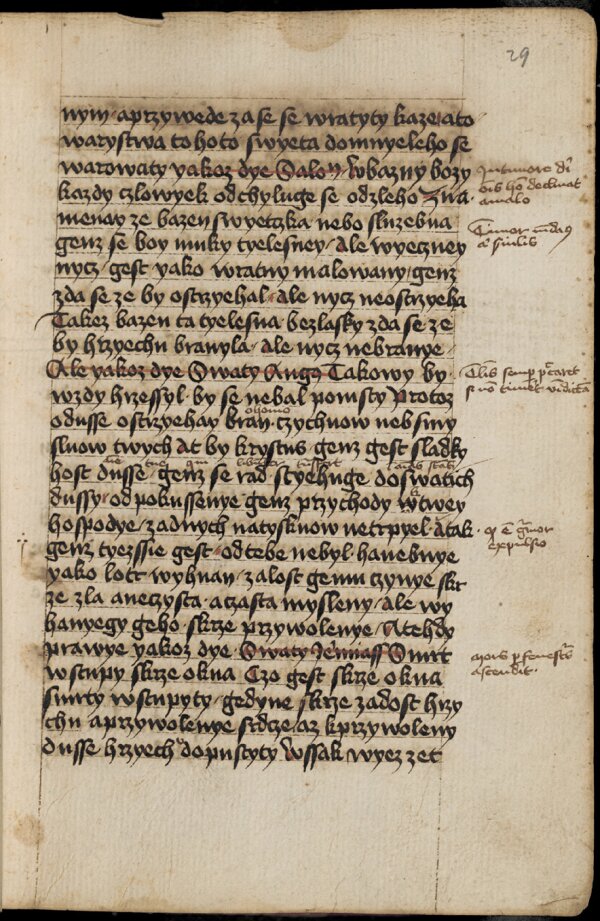 29
nym · a przywede zase se wratyty kaze a to
warystwa tohoto swyeta domnyeleho se
warowaty yakoz dye Salo · W bazny bozy
kazdy czlowyek odchyluge se od zleho Zna
menay ze bazen swyetzka nebo sluzebna
genz se boy muky tyelesney · Ale wyeczney
nycz · gest yako wratny malowany genz
zda se ze by ostrzyehal · ale nycz neostrzyeha
Takez bazen ta tyelesna · bez lasky zda se ze
by hrzyechu branyla · ale nycz nebranye ·
Ale yakoz dye Swaty Augo Takowy by
wzdy hrzessyl · by se nebal pomsty Protoz
o dusse ostrzyehay bran · czychuow neb smy
sluow twych At by krystus · genz gest sladky
host dusse · genz se rad stychuge do swatich
dussy · od pokussenye genz przychody w twey
hospodye · zadnych natyskuow netrpyel · A tak
genz tyezssie gest · od tebe nebyl · hanebnye
yako lotr wyhnan · zalost gemu czynye skr
ze zla a neczysta · a czasta mysleny · ale wy
hanyegy geho · skrze przywolenye · A tehdy
prawye yakoz dye · Swaty Jeremiass Smrt
wstupy skrze okna Czo gest skrze okna
smrty wstupyty · gedyne skrze zadost hrzy
chu a przywolenye srdcze · az k przywoleny
dusse hrzyech dopustyty Wssak wyez zet
In timore di
ois ho declinat
a malo
Timor
expulsio
mors p fenestras
ascendit ·